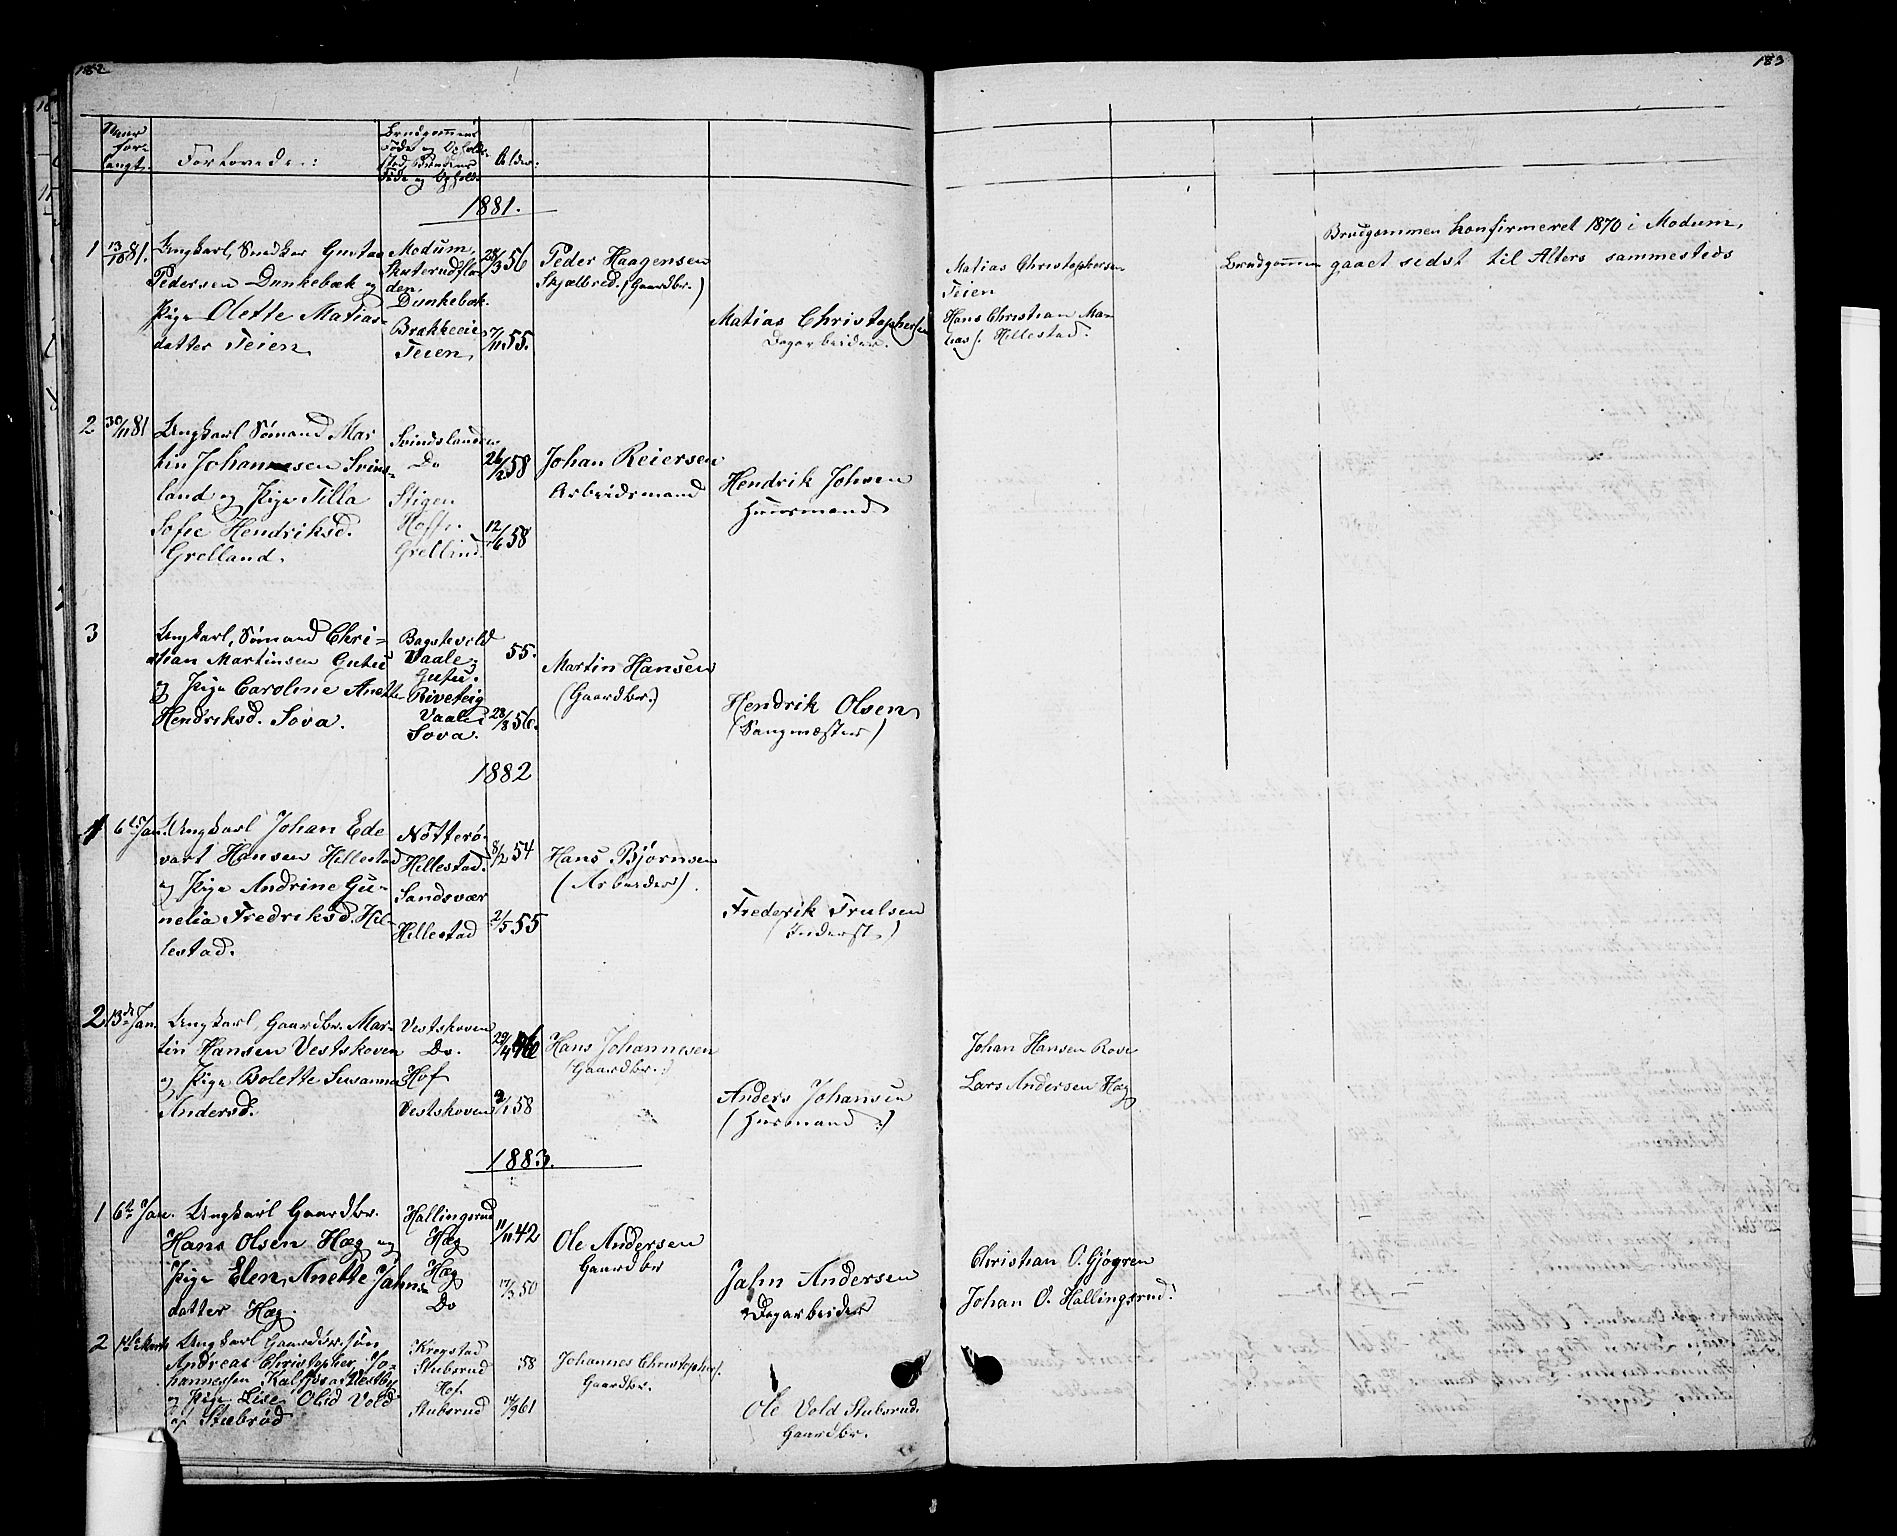 182
183
Naar
for-
langt.
Forlovede:
Brudgommens
Føde og Opholds-
sted, Brudens
Føde og Ophold.
Alder:
1881.
1 13/10 81. Ungkarl, Snedker Gustav
Pedersen Dunkebæk og
Pige Olette Matias-
datter Teien
Modum,
Dunkebæk.
Brækkeeie
Teien,
28/3 56
7/11 55.
Peder Haagensen
Skjælbred. (Gaardbr.)
Matias Christophersen
Dagarbeider.
Matias Christophersen
Teien
Hans Christian Ma-
tias s. Hillestad.
Brudgommen
Brudgommen konfirmeret 1870 i Modum,
gaaet sidst til Alters sammesteds
2 30/11 81 Ungkarl Sømand Mar
tin Johannesen Svins-
land og Pige Tilla
Sofie Hendriksd.
Grelland.
Svindsland
Do
Stigen
Hoff.
Grelland
26/2 58
12/6 58
Johan Reiersen
Arbeidsmand
Hendrik Johsen
Huusmand
3 Ungkarl, Sømand Chri-
stian Martinsen Gutu
og Pige Caroline Anette
Hendriksd. Sova.
Bagstevold
Vaale.
Gutu.
Riveteig
Vaale
Sova.
55.
28/8 56.
Martin Hansen
(Gaardbr.)
Hendrik Olsen
(Sangmester)
1882
1 6te Jan. Ungkarl Johan Ede
vart Hansen Hillestad
og Pige Andrine Gu-
nelia Fredriksd. Hil-
lestad.
Nötterö.
Hillestad.
Sandsvær
Hillestad
8/2 54
2/5 55
Hans Bjørnsen
(Arbeider).
Frederik Trulsen
(Inderst.)
2 13de Jan. Ungkarl, Gaardbr. Mar-
tin Hansen Vestskoven
og Pige Bolette Susanna
Andersd.
Vestskoven
Do.
Hof
Vestskoven
58
Hans Johannesen
(Gaardbr.)
Anders Johansen
(Husmand.)
Johan Hansen Rove
Lars Andersen Hæg
1883.
1 6te Jan. Ungkarl Gaardbr.
Hans Olsen Hæg og
Pige Elen Anette Jahns
datter Hæg.
Hallingsrud
Hæg
Hæg
Do
11/11 42
17/3 50
Ole Andersen
Gaardbr
Jahn Andersen
Dagarbeider
Christian O. Gjøgren
Johan O. Hallingsrud.
2 Marts Ungkarl Gaardbr. søn
Andreas Christopher Jo-
hannessen
og Pige Lise Olsd Vold
af Stubrød
Krogstad
Stubsrud
Hof.
Stubsrud
58
17/9 61
Johannes Christophers.
Gaardbr.
Ole Vold Stubsrud.
Gaardbr.